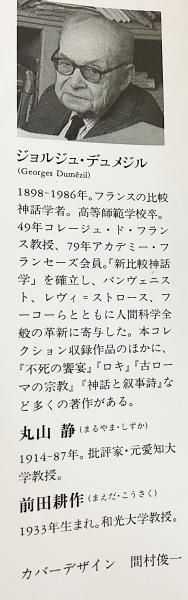 ジョルジュ・デュメジル
(Georges Dumézil)
1898–1986年。フランスの比較
神話学者。高等師範学校卒。
49年コレージュ・ド・フラン
ス教授、79年アカデミー・フ
ランセーズ会員。「新比較神話
学」を確立し、バンヴェニス
ト、レヴィ＝ストロース、フ
ーコーらとともに人間科学全
般の革新に寄与した。本コレ
クション収録作品のほかに、
『不死の饗宴』『ロキ』『古ロー
マの宗教』『神話と叙事詩』な
ど多くの著作がある。
丸山 静 (まるやま・しずか)
1914–87年。批評家・元愛知大
学教授。
前田耕作 (まえだ・こうさく)
1933年生まれ。和光大学教授。
カバーデザイン 間村俊一